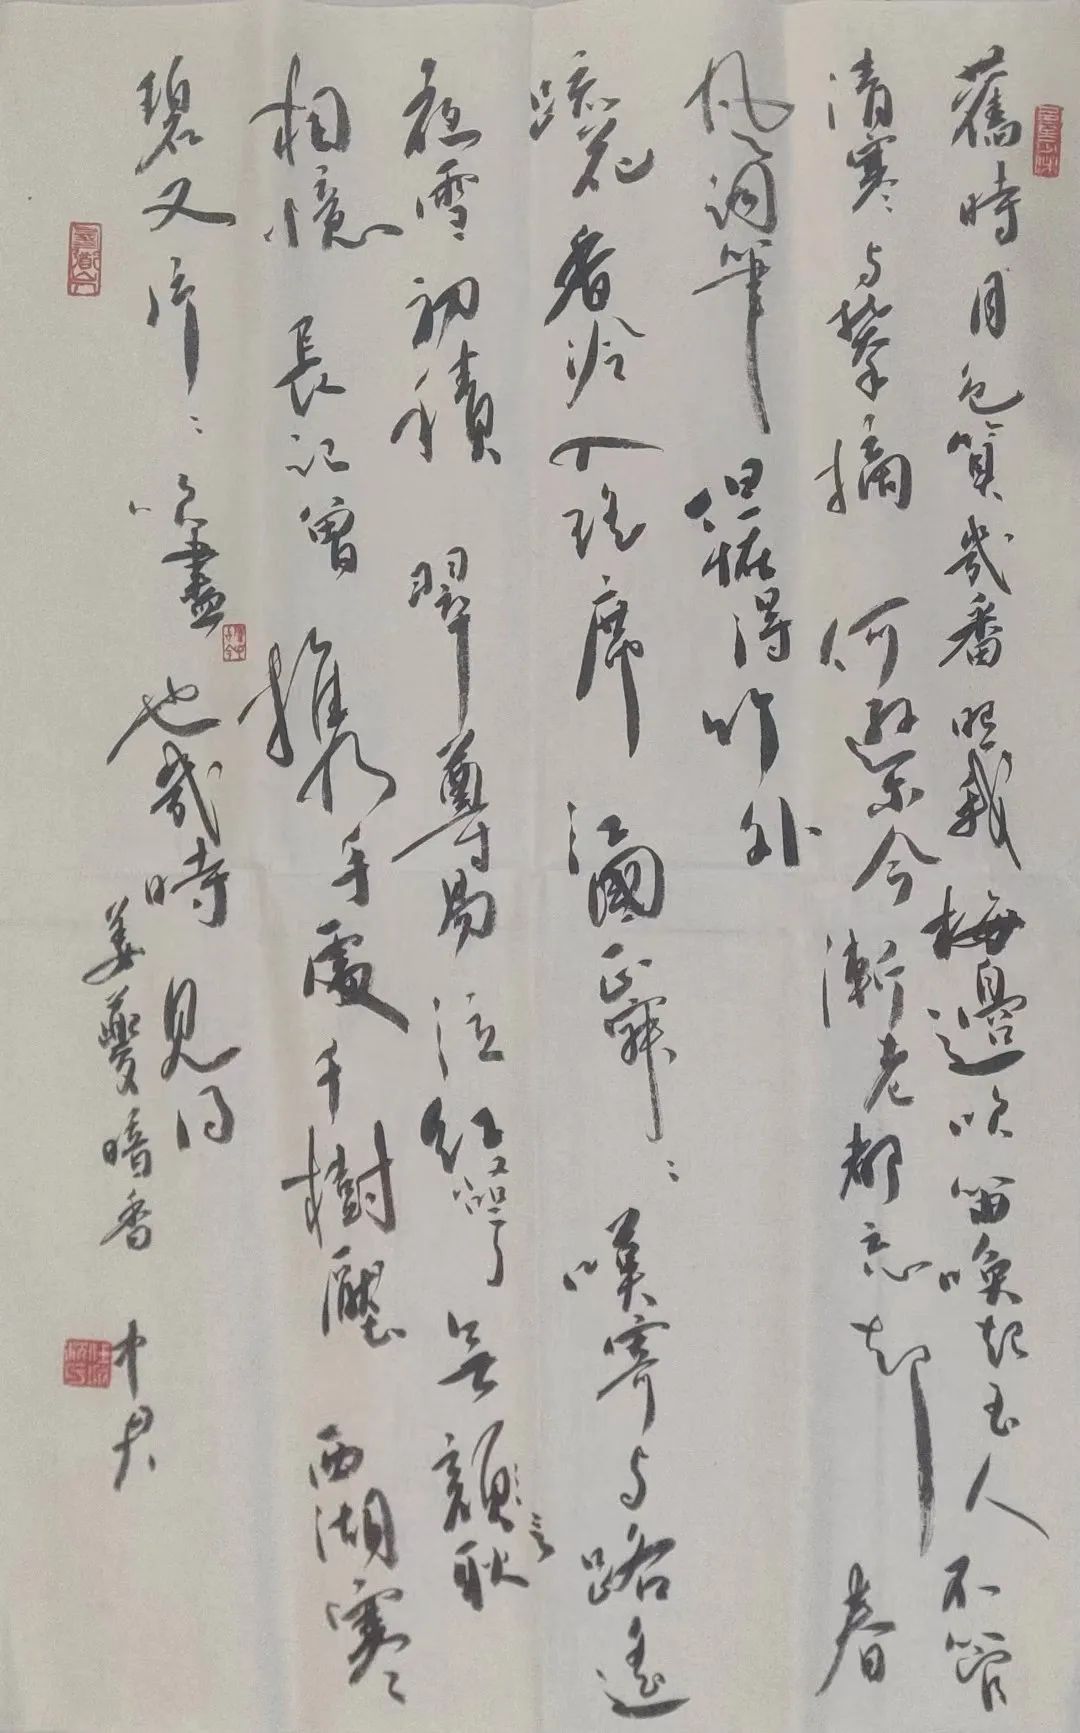 舊時月色算幾番照我梅邊吹笛喚起玉人不管
清寒與攀摘何遜而今漸老都忘却春
風詞筆但怪得竹外
疏花香冷入瑤席江國正寂寂嘆寄与路遙
夜雪初積翠尊易泣紅萼無言耿
相憶長記曾攜手處千樹壓西湖寒
碧又片片吹盡也幾時見得
姜夔暗香 中君